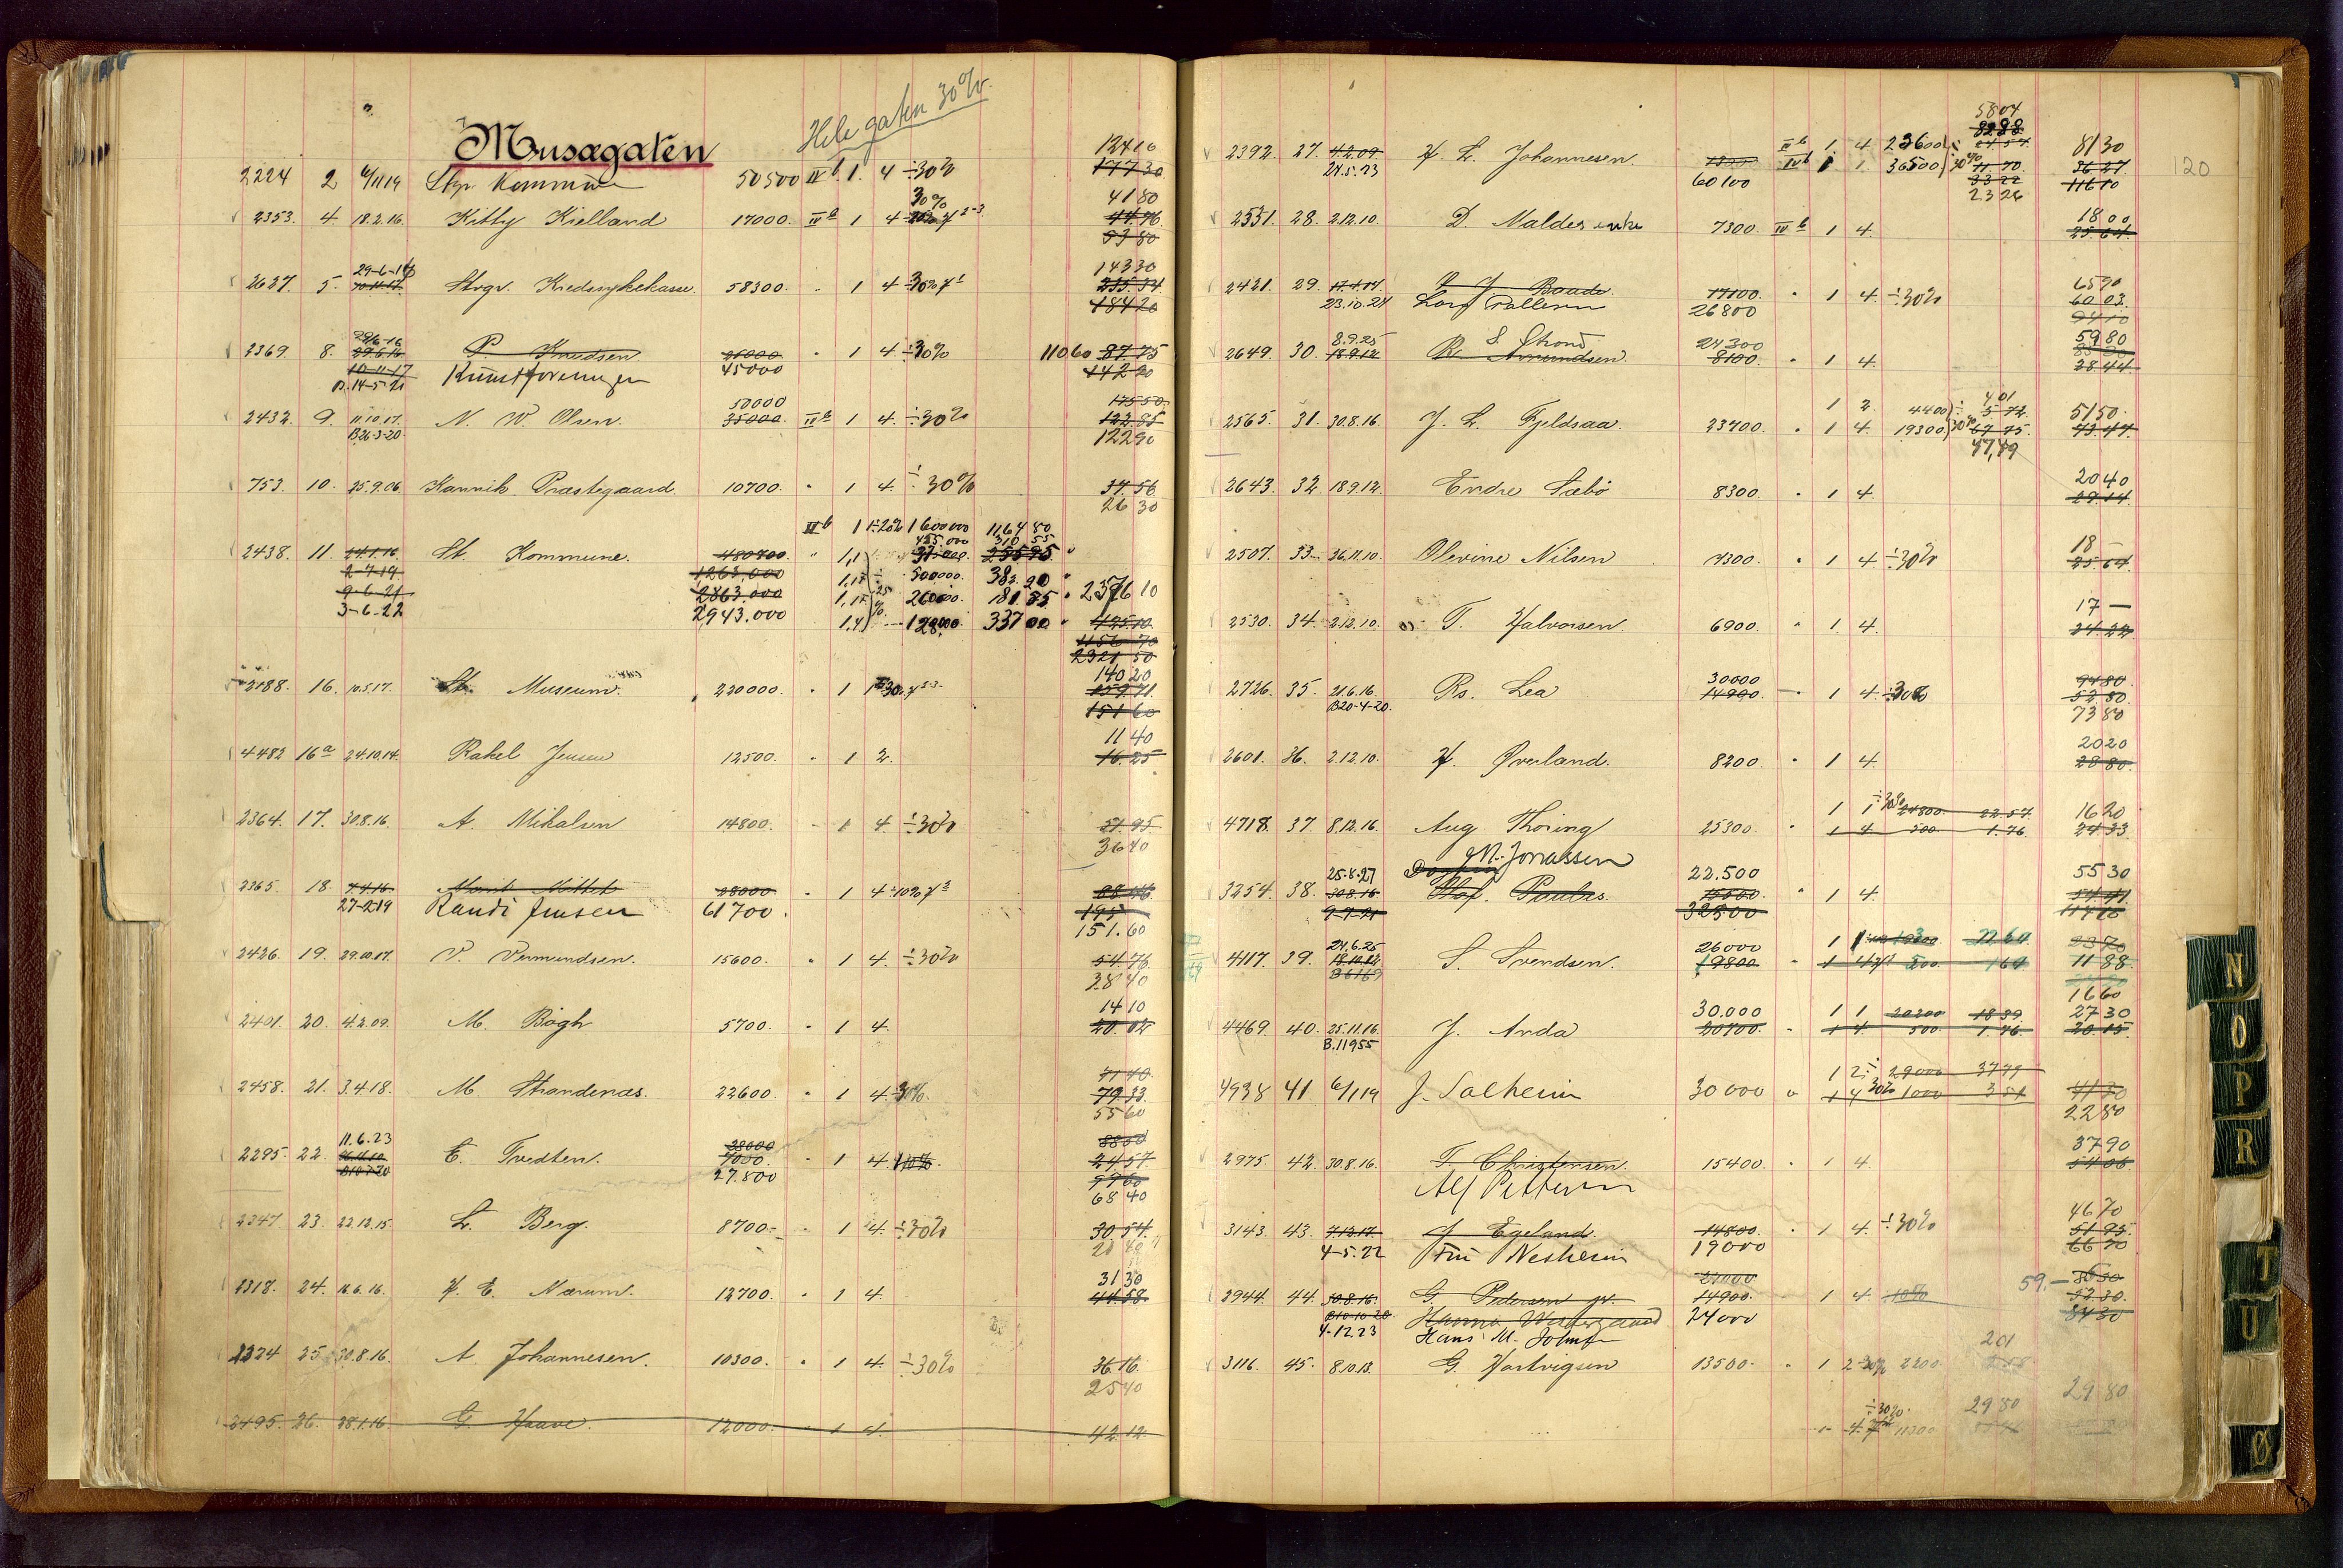 Hele gaten 30%.
Musægaten
12416
2224 2 6/11 19 Stgr Kommune 50500 IV b 1. 4 ÷30% 177 30
30% 41 80
2353. 4. 18.2.16. Kitty Kielland 17000. IV b 1 4 44.76
53 80
29-6-17 143 30
2627. 5. Stvgr. Kredssykekasse 58300. " 1 4 30% 235.34
184 20
29/6-16
2369. 8. 29.6.16 P. Knudsen 25000. " 1 4. ÷30% 11060 87.75
10-11-17 45000 142 90
B. 14-5-21 Kunstforeningen
50000 175 50
2432. 9. 11.10.17. N. W. Olsen. 35000. IV b 1 4. ÷30% 122.85
B26-3-20 122 90
753. 10. 25.9.06 Kannik Præstegaard. 10700. " 1 4. ÷30% 37.56
26 30
IV b 1 1 ÷20% 1600000 1164 80
455.000 310 55
2438. 11. 24.1.16 St. Kommune. 480700. " 1,1 37000. 255 95
2-7-19 1263,000 1,1 500,000. 382.20
9-6-21 2863.000 1,1 26000. 181 35 " 2376 10
3-6-22 2943.000 1,4 12000. 337 00 " 425.10
28.
1156 70
2321 50
140 20
2188. 16. 10.5.17. St. Museum. 220000. " 1 1 ÷30% 159.71
151 60
11 40
4482 16a 24.10.14. Rakel Jensen 12500. " 1 2. 16.25
2364. 17. 30.8.16. A. Mikalsen 14800. 1 4. ÷30% 51.95
36 40
2365. 18. 7.4.16. Marit Mittet 28000. " 1 4 ÷10%
27-2-19 Randi Jensen 61700. 195
151.60
2426. 19. 29.10.17. V. Vermundsen. 15600. " 1 4. ÷30% 54.76
38 40
14 10
2401. 20. 4.2.09. M. Bögh 5700. " 1 4. 20.02
2458. 21. 3.4.18. M. Strandenæs. 22600. " 1 4. 30%. 79.33
55 60
11.6.23 28000
2295. 22. E. Tvedten. 7000. " 1 4. 10%. 24 57
27.800
68 40
2347 23. 22.12.15. L. Berg. 8700. " 1 4. ÷30% 30 54.
31 30
2318. 24. 16.6.16. H. E. Nærum. 12700. " 1 4. 44.58.
2324 25 30.8.16. A. Johannesen. 10300. " 1 4. ÷30% 36 16.
25 40
2495. 26. 28.1.16. G. Haave. 12000. 1 4. 42.12.
120
5804
2392. 27. 4.2.09. H. L. Johannesen. IV b 1. 4. 23600 81 30
24.5.23 60100 IV b 1 1. 36500 30% 36 27
33 22 116 10
23 26
18 00
2331. 28. 2.12.10. D. Maldes enke 7300. IV b 1 4. 25.64.
65 70
2421. 29. 17.4.14. J. Baade. 17100. " 1 4. ÷30% 60 03.
23.10.24 Lars Pallesen 26800
8.9.25 S Strand 24300 59 80
2649. 30. 18.9.12. R. Amundsen. 8100. " 1 4. 28 44.
4 01
1 2. 4400 5 72. 51 50.
2565. 31. 30.8.16. J. L. Fjeldsaa. 23700. " 1 4. 19300 30% 67 75. 73.47.
47,49
20 40
2643. 32. 18.9.12. Endre Sæbö 8300. " 1 4. 29.14.
18 —
2507. 33. 26.11.10. Olevine Nilsen 7300. " 1 4 ÷30% 25.64.
17 —
2530. 34. 2.12.10. T. Halvorsen. 6900. " 1 4. 24.22
30000
2726. 35. 21.6.16. Rs. Lea 14900. 1 4. ÷30% 52 30.
B20-4-20. 73 80
20 20
2601. 36. 2.12.10. H. Øverland. 8200. " 1 4. 28 80.
1 1 ÷30% 24800. 22.57. 16 20
4718. 37. 8.12.16. Aug. Thoring 25300. " 1 4 500 1.76 24 33
M. Jonassen
25-8-27 22.500 55 30
3254. 38. 30.8.16 Olaf. Paulus. 15500. " 1 4.
9-9-21 32500 114 10
24.6.25 26000
4117. 39. 18.10.12 S. Svendsen. 19800. 11 88.
16 60
30.000 1 1 20200 18 39. 27 30
4469. 40. 25.11.16. J. Anda 20700. " 1 4. 500. 1 76. 20.15
B.11955
1 2 ÷ 29000 37 77
4938 41 6/1 19 J. Salheim 30000 " 1 4 30% 1000 3 51 41 30
22 80
37 90
2975. 42. 30.8.16. T. Christensen. 15400. " 1 4. 54 06.
Alf Pettersen
46 70
3143. 43. 7.12.17. J. Egeland. 14800. " 1 4. ÷30% 51 95.
4-5.22 Fru Nesheim 19000 66 70
27000 59.—
2944. 44. 30.8.16. G. Pedersen jr. 14900. 1 4. 10% 52 30.
B10-10-20 Hanna Vestergaard 24000
4-12.23 Hans M. Johnsen
2 01
3116. 45. 8.10.13. G. Hartvigsen 13500. " 1 2 ÷30% 2200.
29 80
÷30% 29 80
1 4. 11300
N
O
P
R
T
U
Ø